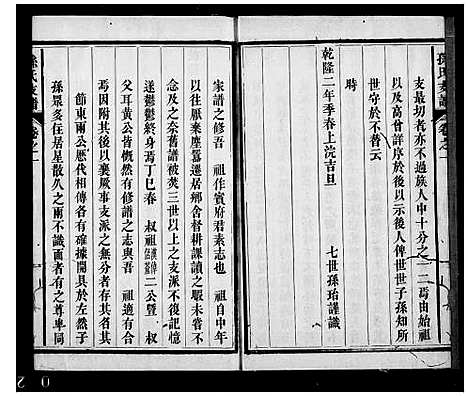 支最切者亦不過族人中十分之一二焉由始祖
以及高曾詳序於後以示後人俾世世子孫知所
世守於不替云
時
乾隆二年季春上浣吉旦
七世孫珆謹識
家譜之修倣　祖作賓府君素志也　祖自中年
以往厭束塵囂遷居鄉舍督耕課讀之暇未嘗不
念及之奈舊譜被焚三世以上之支派不復記憶
遂鬱鬱終身焉丁巳春　叔祖　二公暨　叔
父耳黃公皆慨然有修譜之志與吾　祖適有合
焉因附其後以襄厥事支派之無分者存其各其
節東兩公歷代相傳各有確據開具於左然子
孫眾多住居星散久之兩不識面者有之尊卑同
孫氏支譜
卷之一